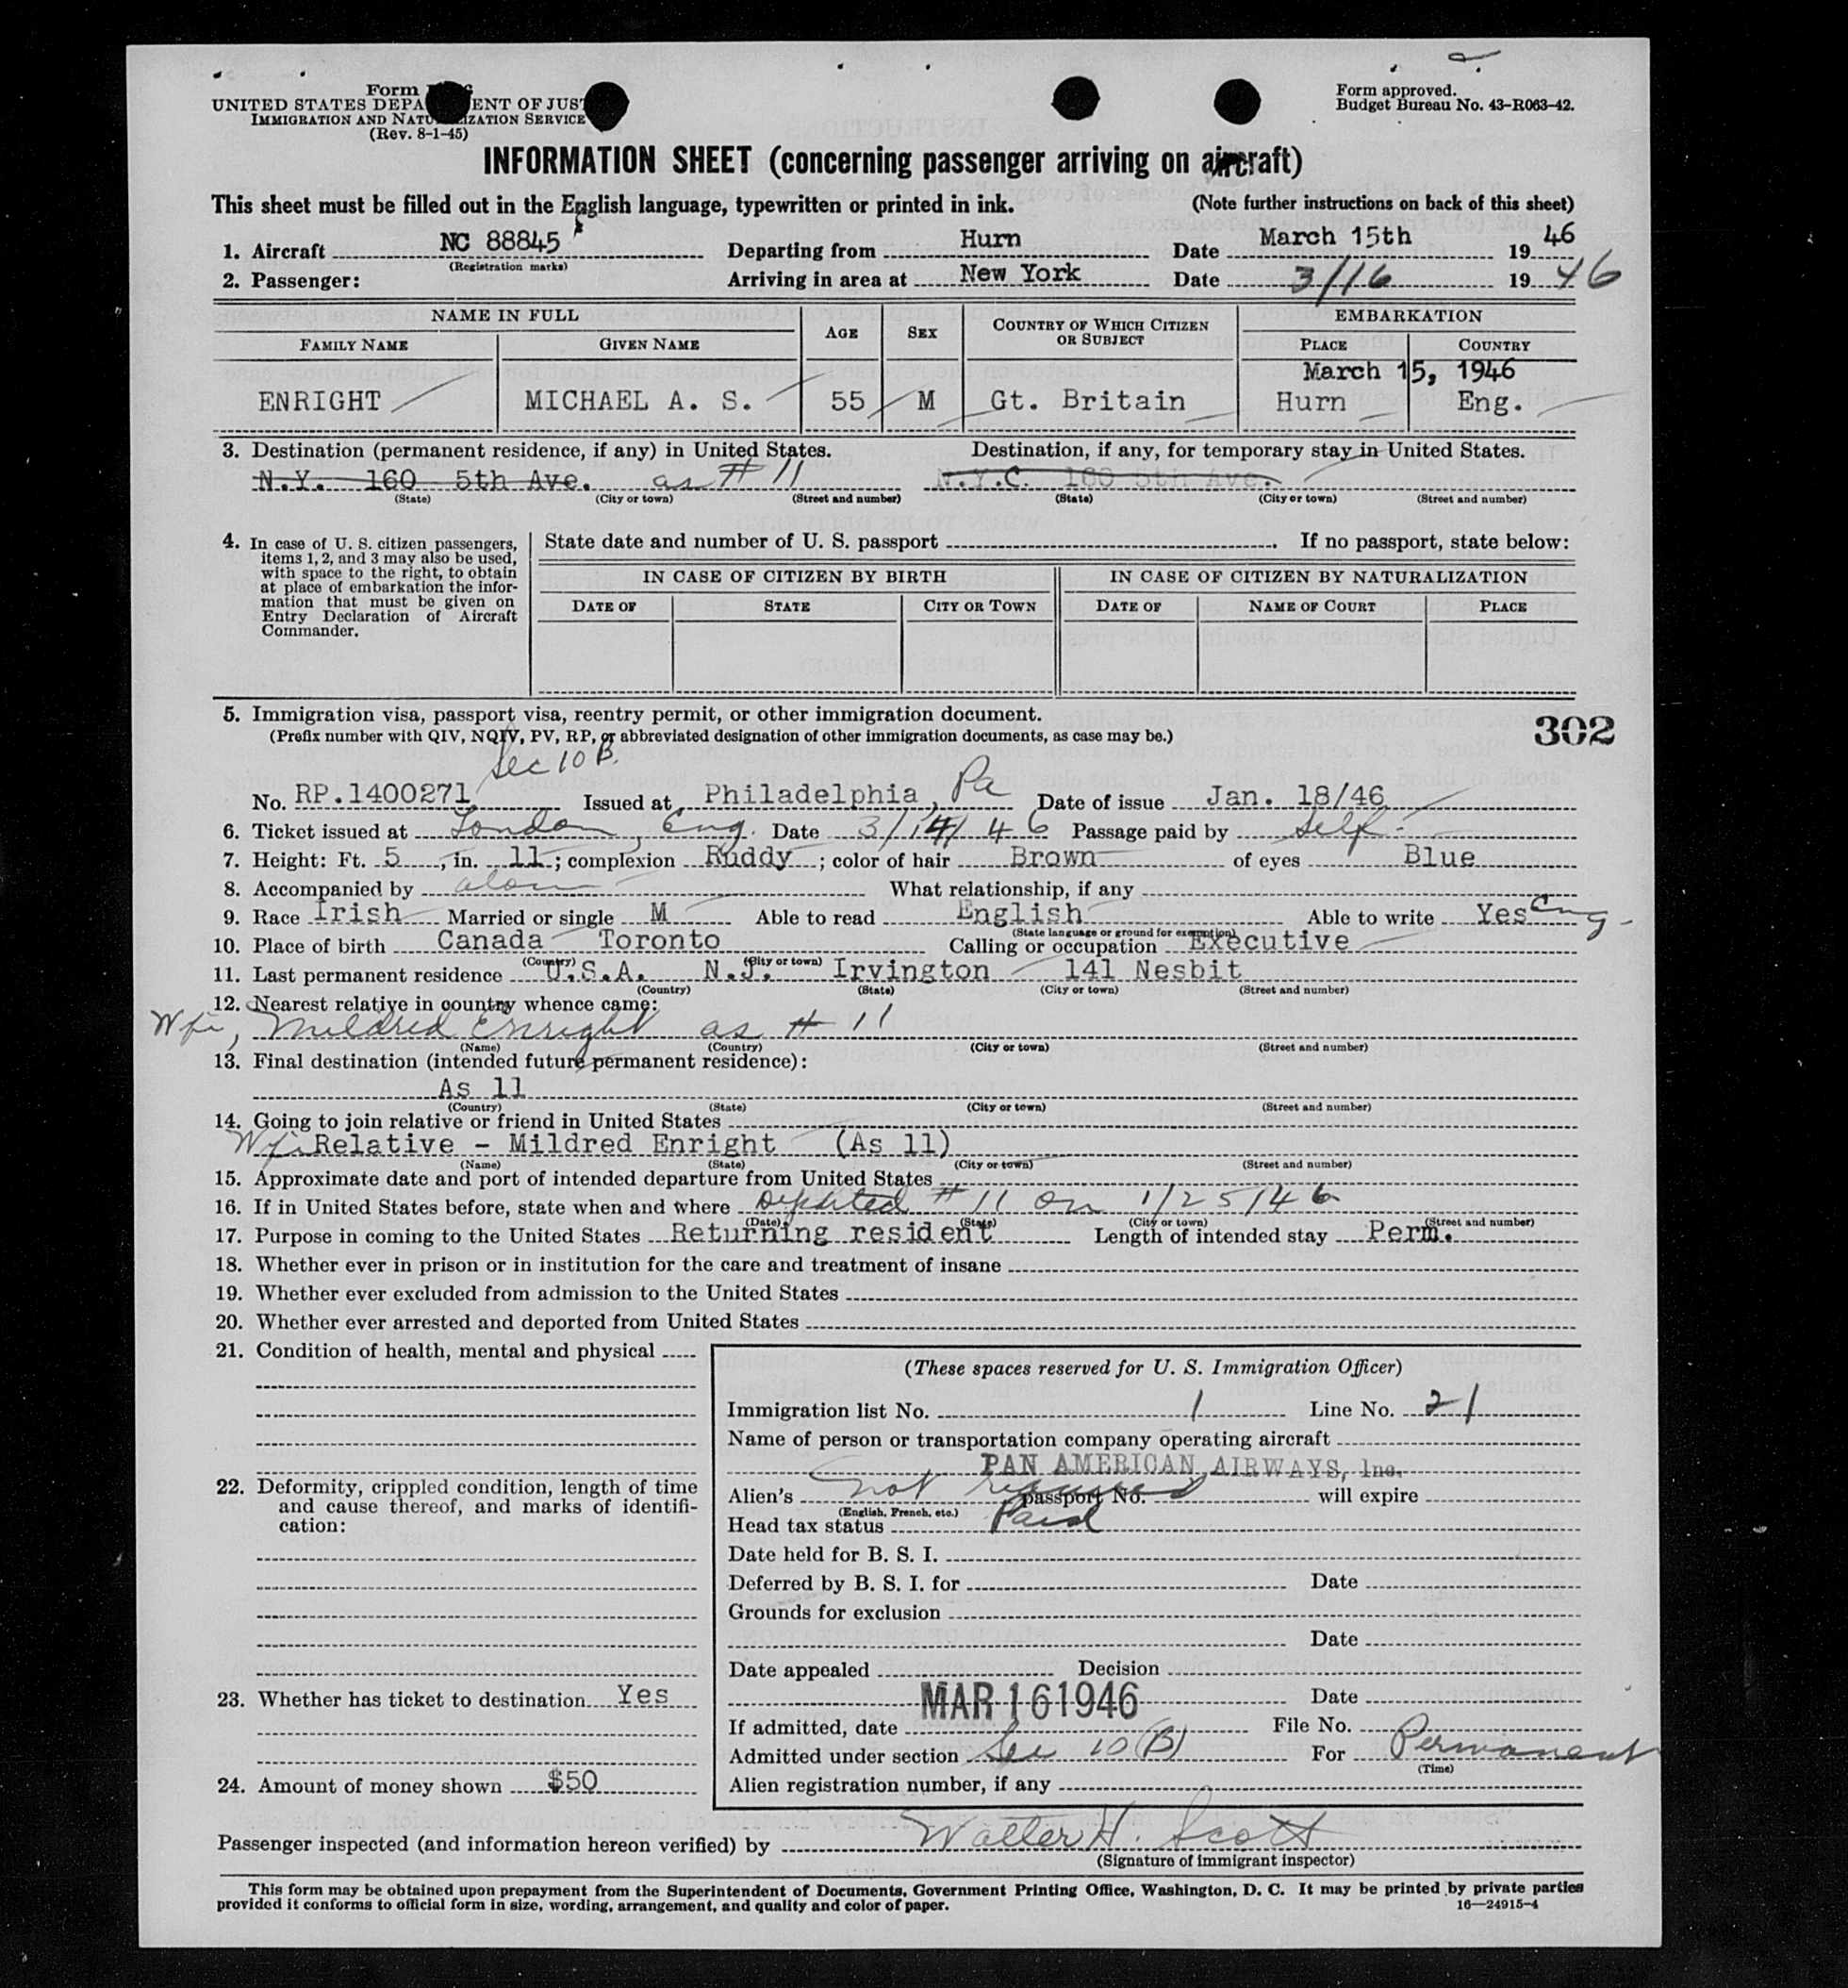 Form
UNITED STATES DEPA ENT OF JUST
IMMIGRATION AND NATU IZATION SERVICE
(Rev. 8-1-45)
Form approved.
Budget Bureau No. 43-R063-42.
INFORMATION SHEET (concerning passenger arriving on aircraft)
This sheet must be filled out in the English language, typewritten or printed in ink. (Note further instructions on back of this sheet)
1. Aircraft NC 88845 Departing from Hurn Date March 15th 19 46
(Registration marks)
2. Passenger: Arriving in area at New York Date 3/16 19 46
NAME IN FULL AGE SEX COUNTRY OF WHICH CITIZEN OR SUBJECT EMBARKATION
FAMILY NAME GIVEN NAME PLACE COUNTRY
March 15, 1946
ENRIGHT MICHAEL A. S. 55 M Gt. Britain Hurn Eng.
3. Destination (permanent residence, if any) in United States. Destination, if any, for temporary stay in United States.
N.Y. 160 5th Ave. as # 11 N.Y.C. 160 5th Ave.
(State) (City or town) (Street and number) (State) (City or town) (Street and number)
4. In case of U. S. citizen passengers, items 1, 2, and 3 may also be used, with space to the right, to obtain at place of embarkation the information that must be given on Entry Declaration of Aircraft Commander.
State date and number of U. S. passport . If no passport, state below:
IN CASE OF CITIZEN BY BIRTH IN CASE OF CITIZEN BY NATURALIZATION
DATE OF STATE CITY OR TOWN DATE OF NAME OF COURT PLACE
5. Immigration visa, passport visa, reentry permit, or other immigration document.
302
(Prefix number with QIV, NQIV, PV, RP, or abbreviated designation of other immigration documents, as case may be.)
Sec 10 B.
No. RP.1400271 Issued at Philadelphia, Pa Date of issue Jan. 18/46
6. Ticket issued at London, Eng. Date 3/14/46 Passage paid by Self
7. Height: Ft. 5, in. 11; complexion Ruddy; color of hair Brown of eyes Blue
8. Accompanied by alone What relationship, if any
9. Race Irish Married or single M Able to read English Able to write Yes Eng
(State language or ground for exemption)
10. Place of birth Canada Toronto Calling or occupation Executive
(Country) (City or town)
11. Last permanent residence U.S.A. N.J. Irvington 141 Nesbit
(Country) (State) (City or town) (Street and number)
12. Nearest relative in country whence came:
Wfi, Mildred Enright as # 11
(Name) (Country) (City or town) (Street and number)
13. Final destination (intended future permanent residence):
As 11
(Country) (State) (City or town) (Street and number)
14. Going to join relative or friend in United States
Wfi Relative - Mildred Enright (As 11)
(Name) (State) (City or town) (Street and number)
15. Approximate date and port of intended departure from United States
16. If in United States before, state when and where Departed # 11 on 1/25/46
(Date) (State) (City or town) (Street and number)
17. Purpose in coming to the United States Returning resident Length of intended stay Perm.
18. Whether ever in prison or in institution for the care and treatment of insane
19. Whether ever excluded from admission to the United States
20. Whether ever arrested and deported from United States
21. Condition of health, mental and physical
22. Deformity, crippled condition, length of time and cause thereof, and marks of identification:
23. Whether has ticket to destination Yes
24. Amount of money shown $50
(These spaces reserved for U. S. Immigration Officer)
Immigration list No. 1 Line No. 21
Name of person or transportation company operating aircraft
PAN AMERICAN AIRWAYS, Inc.
Alien's not required passport No. will expire
(English, French, etc.)
Head tax status Paid
Date held for B. S. I.
Deferred by B. S. I. for Date
Grounds for exclusion
Date
Date appealed Decision
MAR 16 1946 Date
If admitted, date File No.
Admitted under section Sec 10 (B) For Permanent
(Time)
Alien registration number, if any
Passenger inspected (and information hereon verified) by Walter H. Scott
(Signature of immigrant inspector)
This form may be obtained upon prepayment from the Superintendent of Documents, Government Printing Office, Washington, D. C. It may be printed by private parties
provided it conforms to official form in size, wording, arrangement, and quality and color of paper. 16—24915-4